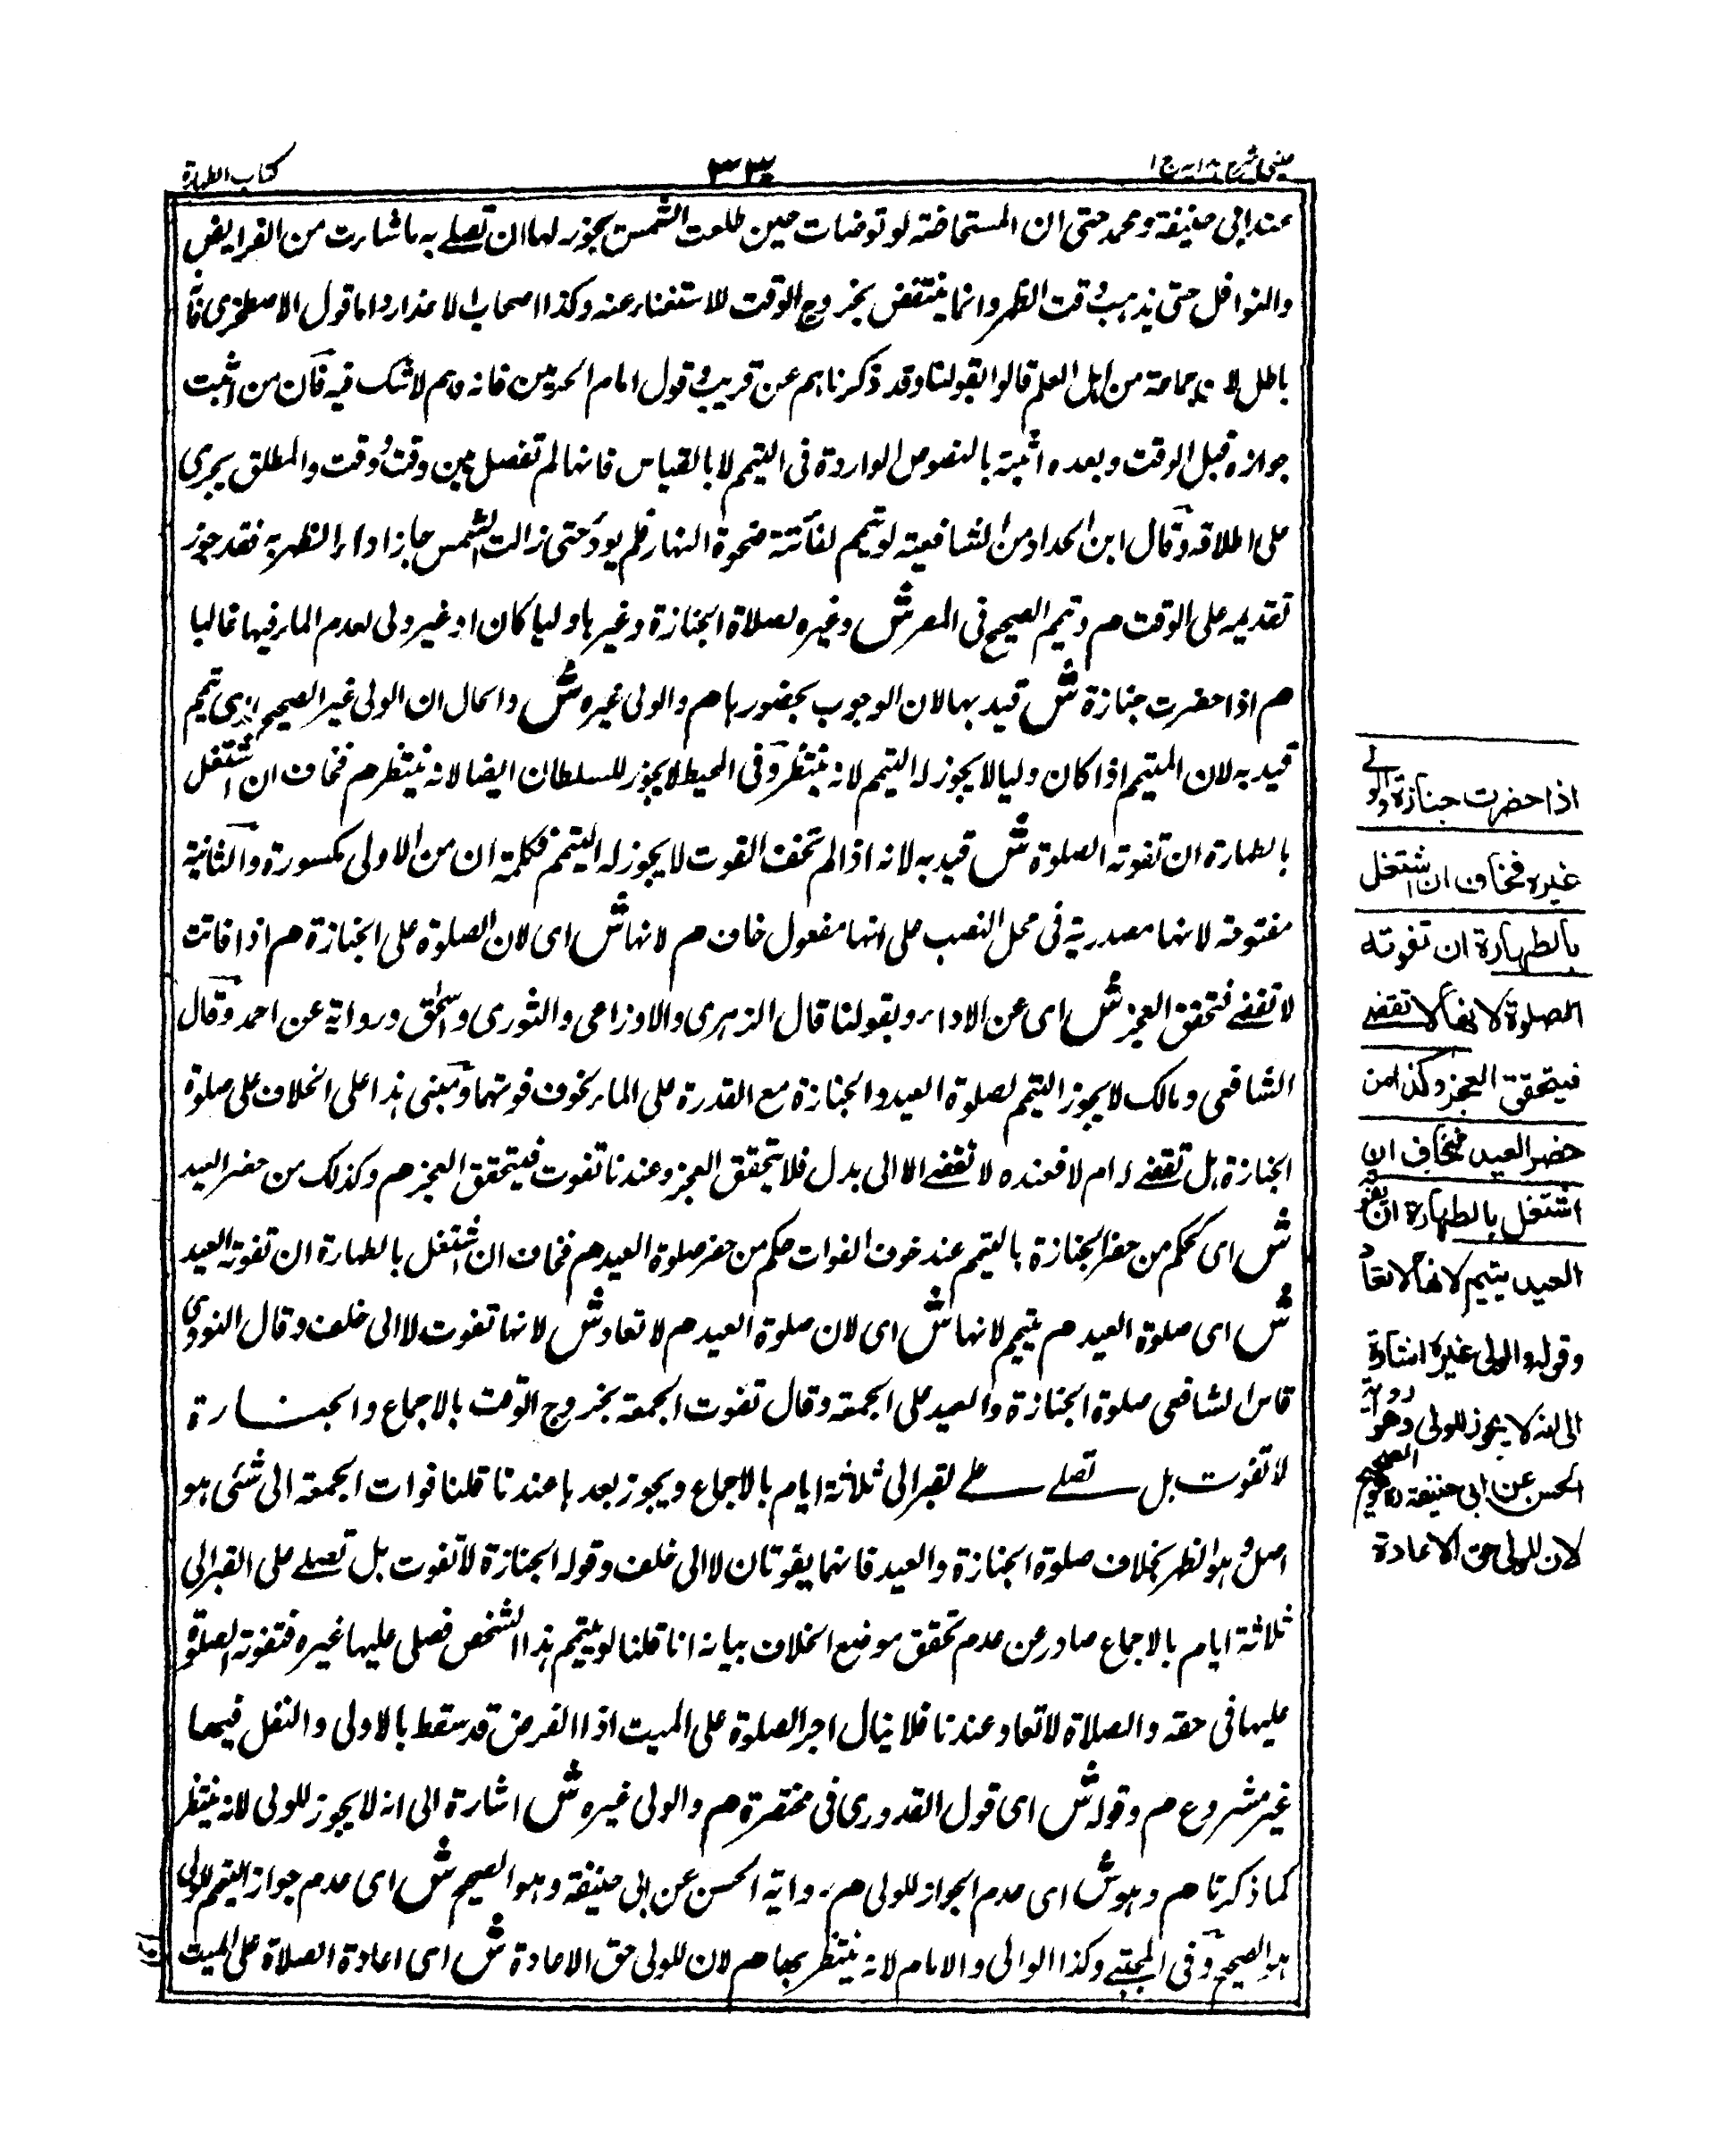 عينى شرح هدايه ج ١
٣٣٠
كتاب الطهارة
عند ابى حنيفة ومحمد حتى ان المستحاضة لو توضأت حين طلعت الشمس يجوز لها ان تصلے به ما شارت من الفرايض
والنوافل حتى يذهب وقت الظهر وانما ينتقض بخروج الوقت للاستغناء عنه وكذا اصحاب الاعذار واما قول الاصطخرى فأ
باطل لان جماعة من اهل العلم قالوا بقولنا وقد ذكرناهم عن قريب وقول امام الحرمين فانه وهم لاشك فيه فان من اثبت
جوازه قبل الوقت وبعده اثبته بالنصوص الواردة فى التيمم لا بالقياس فانها لم تفصل بين وقت ووقت والمطلق يجرى
على اطلاقه وقال ابن الحداد من الشافعية لو تيمم لفائتة ضحوة النهار فلم يودّ حتى زالت الشمس جاز اداء الظهر به فقد جوز
تقديمه على الوقت م وتيمم الصحيح فى المصر ش وغيره لصلاة الجنازة وغيرها وليا كان او غير ولى لعدم الماء فيها غالبا
م اذا حضرت جنازة ش قيد بها لان الوجوب بحضورها م والولى غيره ش والحال ان الولى غير الصحيح الذى تيمم
قيد به لان المتيمم اذا كان وليا لا يجوز له التيمم لانه ينتظر وفى المحيط لا يجوز للسلطان ايضا لانه ينتظر م فخاف ان اشتغل
بالطهارة ان تفوته الصلوة ش قيد به لانه اذا لم تخف الفوت لا يجوز له التيمم فكلمة ان من الاولى مكسورة والثانية
مفتوحة لانها مصدرية فى محل النصب على انها مفعول خاف م لانها ش اى لان الصلوة على الجنازة م اذا فاتت
لا تقضے فتحقق العجز ش اى عن الاداء وبقولنا قال الزهرى والاوزاعى والثورى واسحٰق ورواية عن احمد وقال
الشافعى ومالك لا يجوز التيمم لصلوة العيد والجنازة مع القدرة على الماء بخوف فوتهما ومبنى هذا على الخلاف على صلوة
الجنازة هل تقضے له ام لا فعنده لا تقضے الا الى بدل فلا يتحقق العجز وعندنا تفوت فيتحقق العجز م وكذلك من حضر العيد
ش اى كحكم من حضر الجنازة بالتيمم عند خوف الفوات حكم من حضر صلوة العيد م فخاف ان اشتغل بالطهارة ان تفوته العيد
ش اى صلوة العيد م يتيمم لانها ش اى لان صلوة العيد م لا تعاد ش لانها تفوت لا الى خلف وقال النووى
قاس الشافعى صلوة الجنازة والعيد على الجمعة وقال تفوت الجمعة بخروج الوقت بالاجماع والجنازة
لا تفوت بل تصلے علے لقبر الى ثلاثة ايام بالاجماع ويجوز بعدها عندنا قلنا فوات الجمعة الى شئى هو
اصل وهو الظهر بخلاف صلوة الجنازة والعيد فانهما يفوتان لا الى خلف وقوله الجنازة لا تفوت بل تصلے على القبر الى
ثلاثة ايام بالاجماع صادر عن عدم تحقق موضع الخلاف بيانه انا قلنا لو يتيمم هذا الشخص فصلى عليها غيره فتفوته الصلوة
عليها فى حقه والصلاة لا تعاد عندنا فلا ينال اجر الصلوة على الميت اذا الفرض قد سقط بالاولى والنفل فيها
غير مشروع م وقوله ش اى قول القدورى فى مختصرة م والولى غيره ش اشارة الى انه لا يجوز للولى لانه ينتظر
كما ذكرنا م وهو ش اى عدم الجواز للولى م رواية الحسن عن ابى حنيفة وهو الصحيح ش اى عدم جواز التيمم للولى
هو الصحيح وفى المجتبے وكذا الوالى والامام لانه ينتظر بها م لان للولى حق الاعادة ش اى اعادة الصلاة على الميت
اذا حضرت جنازة والولے
غيره فخاف ان اشتغل
بالطهارة ان تفوته
الصلوة لانها لا تقضے
فيتحقق العجز وكذا من
حضر العيد فخاف ان
اشتغل بالطهارة ان يفوته
العيد يتيمم لانها لا تعاد
وقوله والولى غيره اشارة
الى انه لا يجوز للولى وهو رواية
الحسن عن ابى حنيفة هو الصحيح
لان للولى حق الاعادة